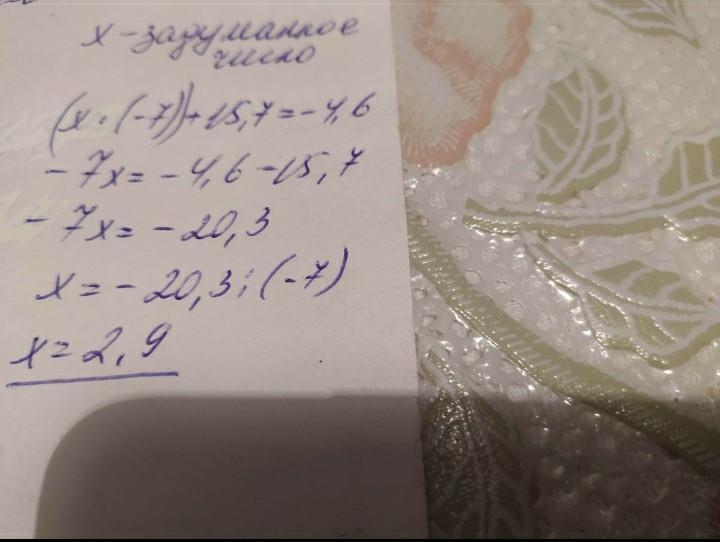 x - задуманное
число
(x · (-7)) + 15,7 = -4,6
-7x = -4,6 - 15,7
-7x = -20,3
x = -20,3 : (-7)
x = 2,9